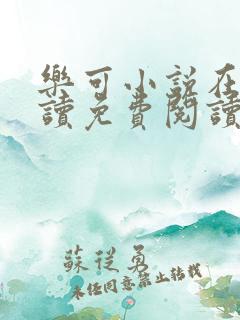 樂可小說在
讀免費閱讀
蘇從勇
未經同意禁止轉載